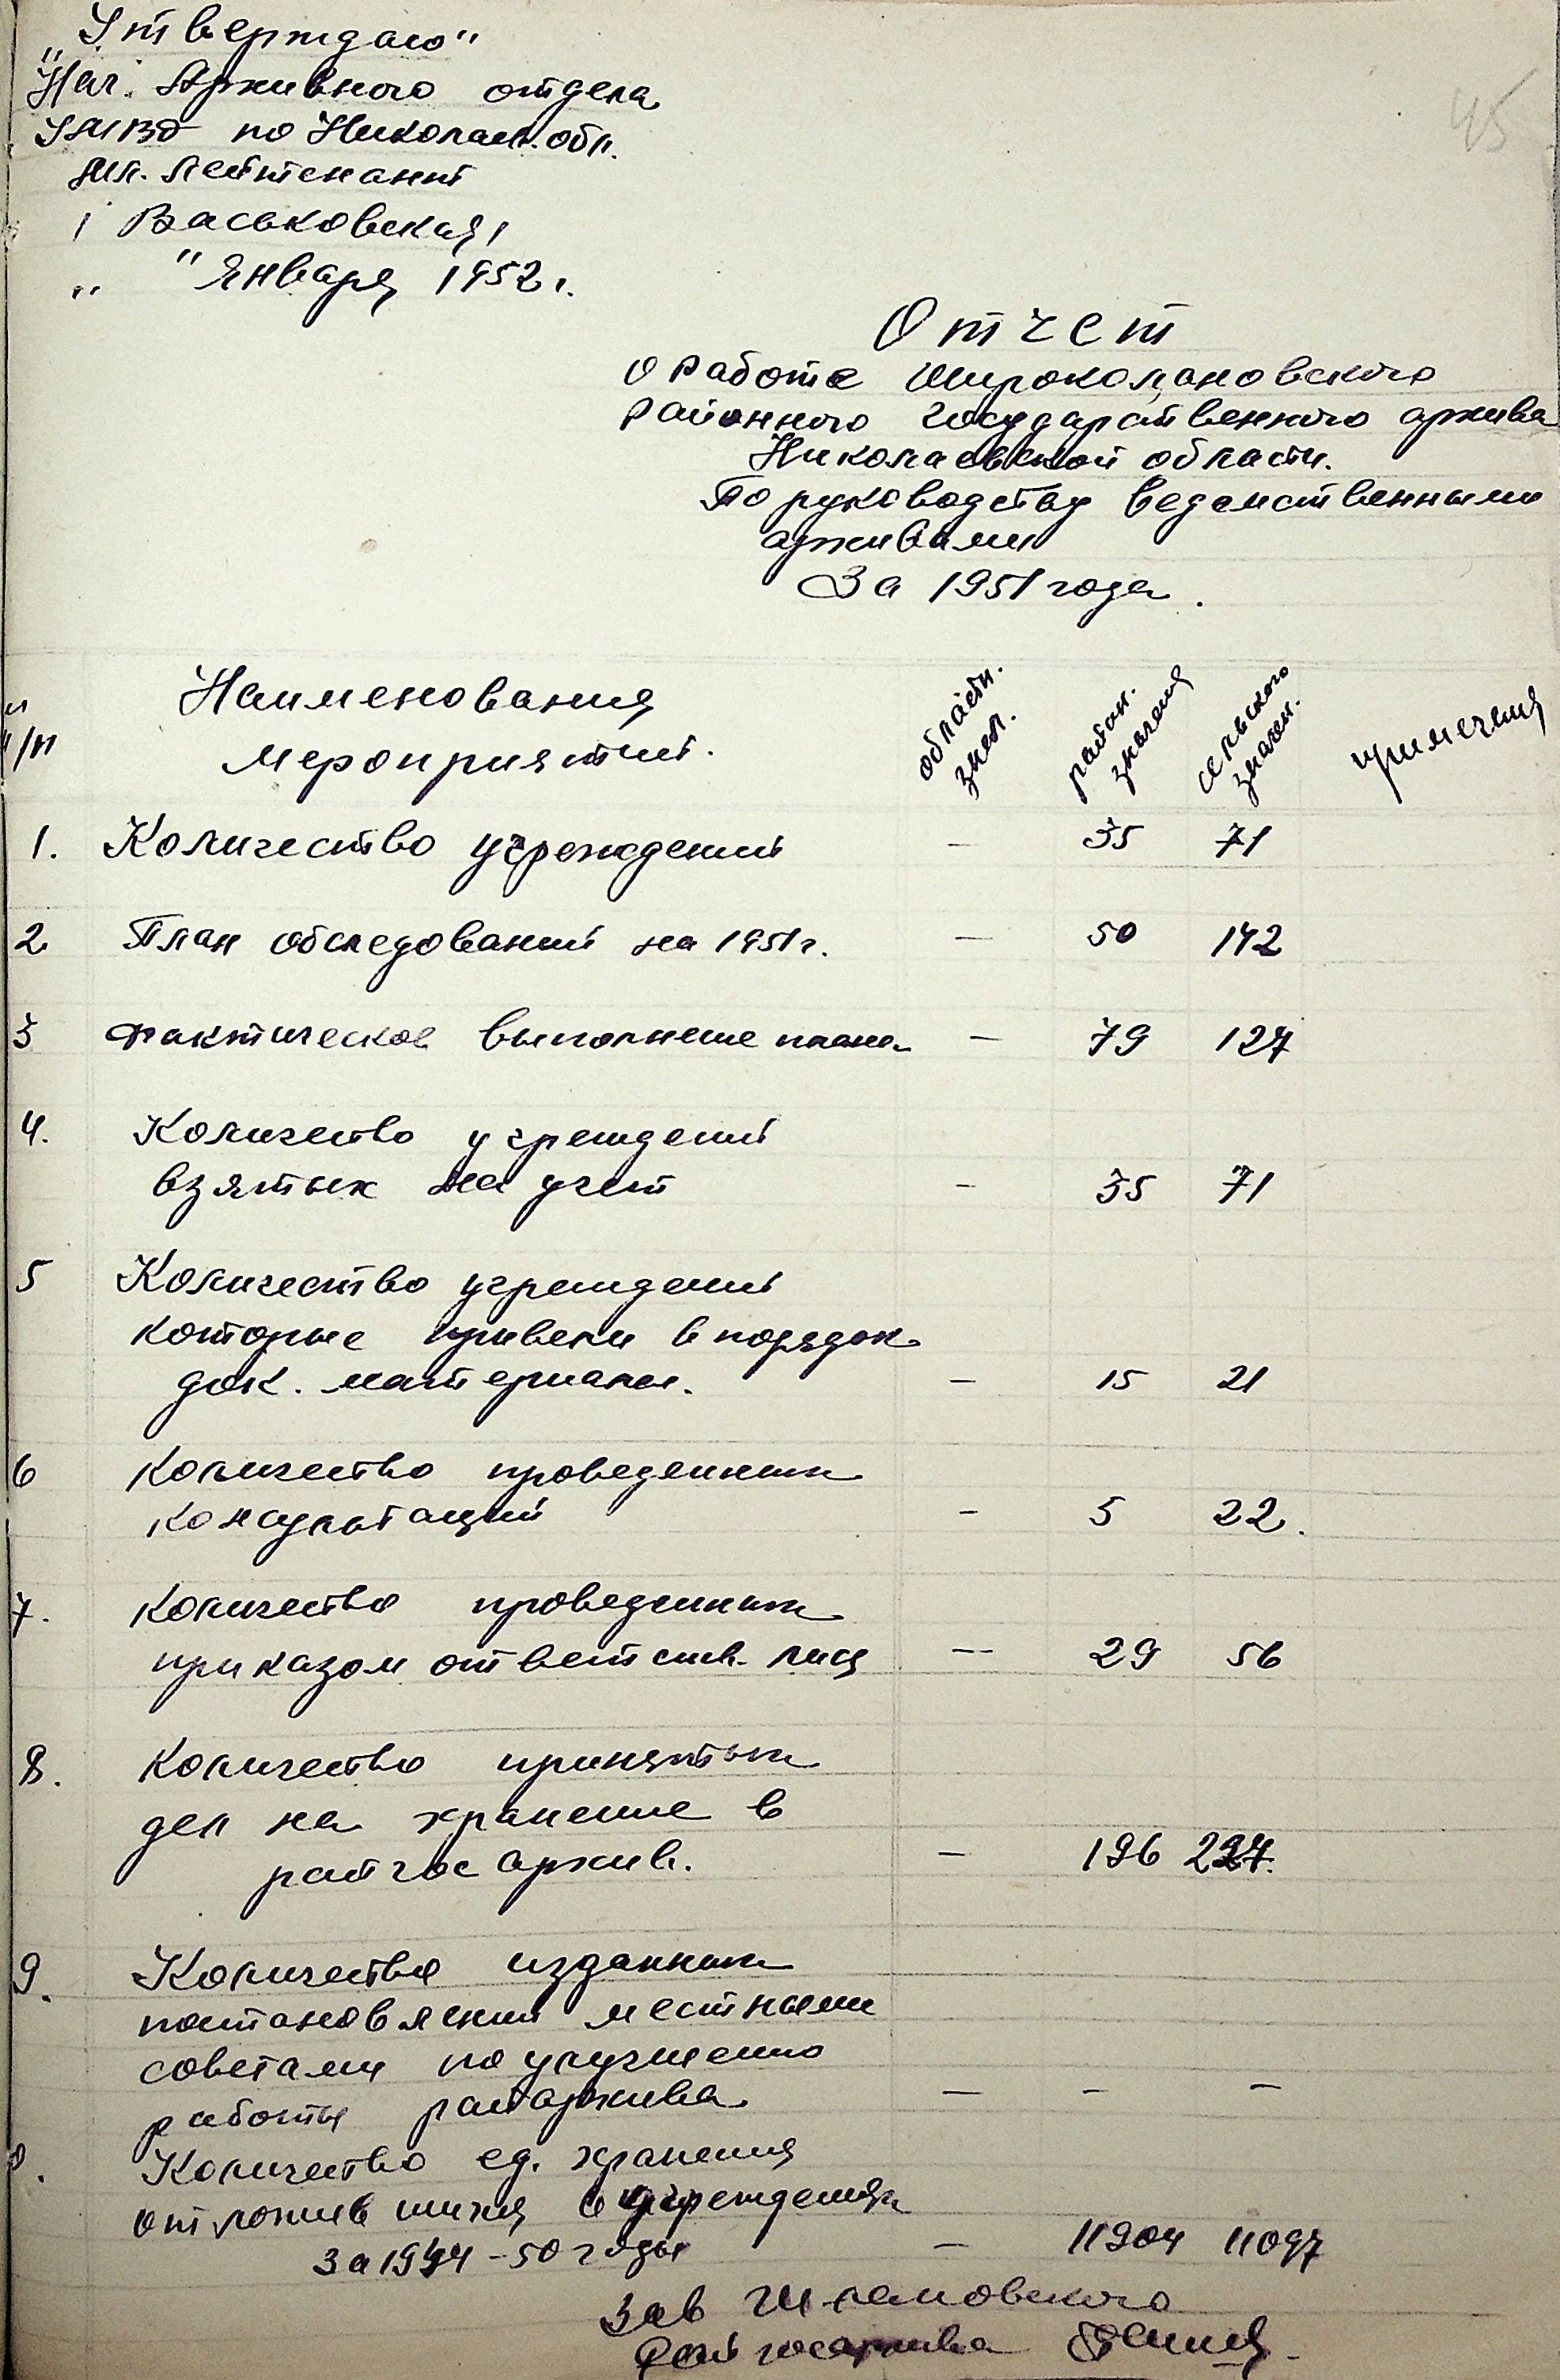 "Утверждаю"
Нач. Архивного отдела
УМВД по Николаев. обл.
мл. лейтенант
/ Васьковская /
" " Января 1952 г.
45
Отчет
о работе Широколановского
районного государственного архива
Николаевской области.
По руководству ведомственными
архивами
За 1951 года.
п/п
Наименования
мероприятий.
областн. знач.
район. значения
сельского значен.
примечения
1. Количество учреждений - 35 71
2 План обследований на 1951 г. - 50 142
3 Фактическое выполнение плана - 79 127
4. Количество учреждений
взятых на учет - 35 71
5 Количество учреждений
которые привели в порядок
док. материалы. - 15 21
6 Количество проведенных
консультаций - 5 22.
7. Количество проведенных
приказом ответств. лиц - 29 56
8. Количество принятых
дел на хранение в
райгосархив. - 196 227.
9. Количество изданных
постановлений местными
советами по улучшению
работы райархива - - -
Количество ед. хранения
отложившихся в учреждениях
за 1944-50 годы - 11904 11097
Зав Ш-лановского
Райгосархива